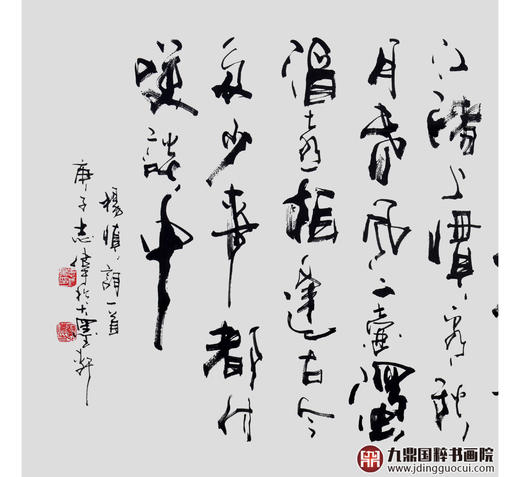 江渚上慣看秋
月春风一壶濁
酒喜相逢古今
多少事都付
笑談中
楊慎詞一首
庚子志於墨軒
九鼎国粹书画院
www.jdingguocui.com